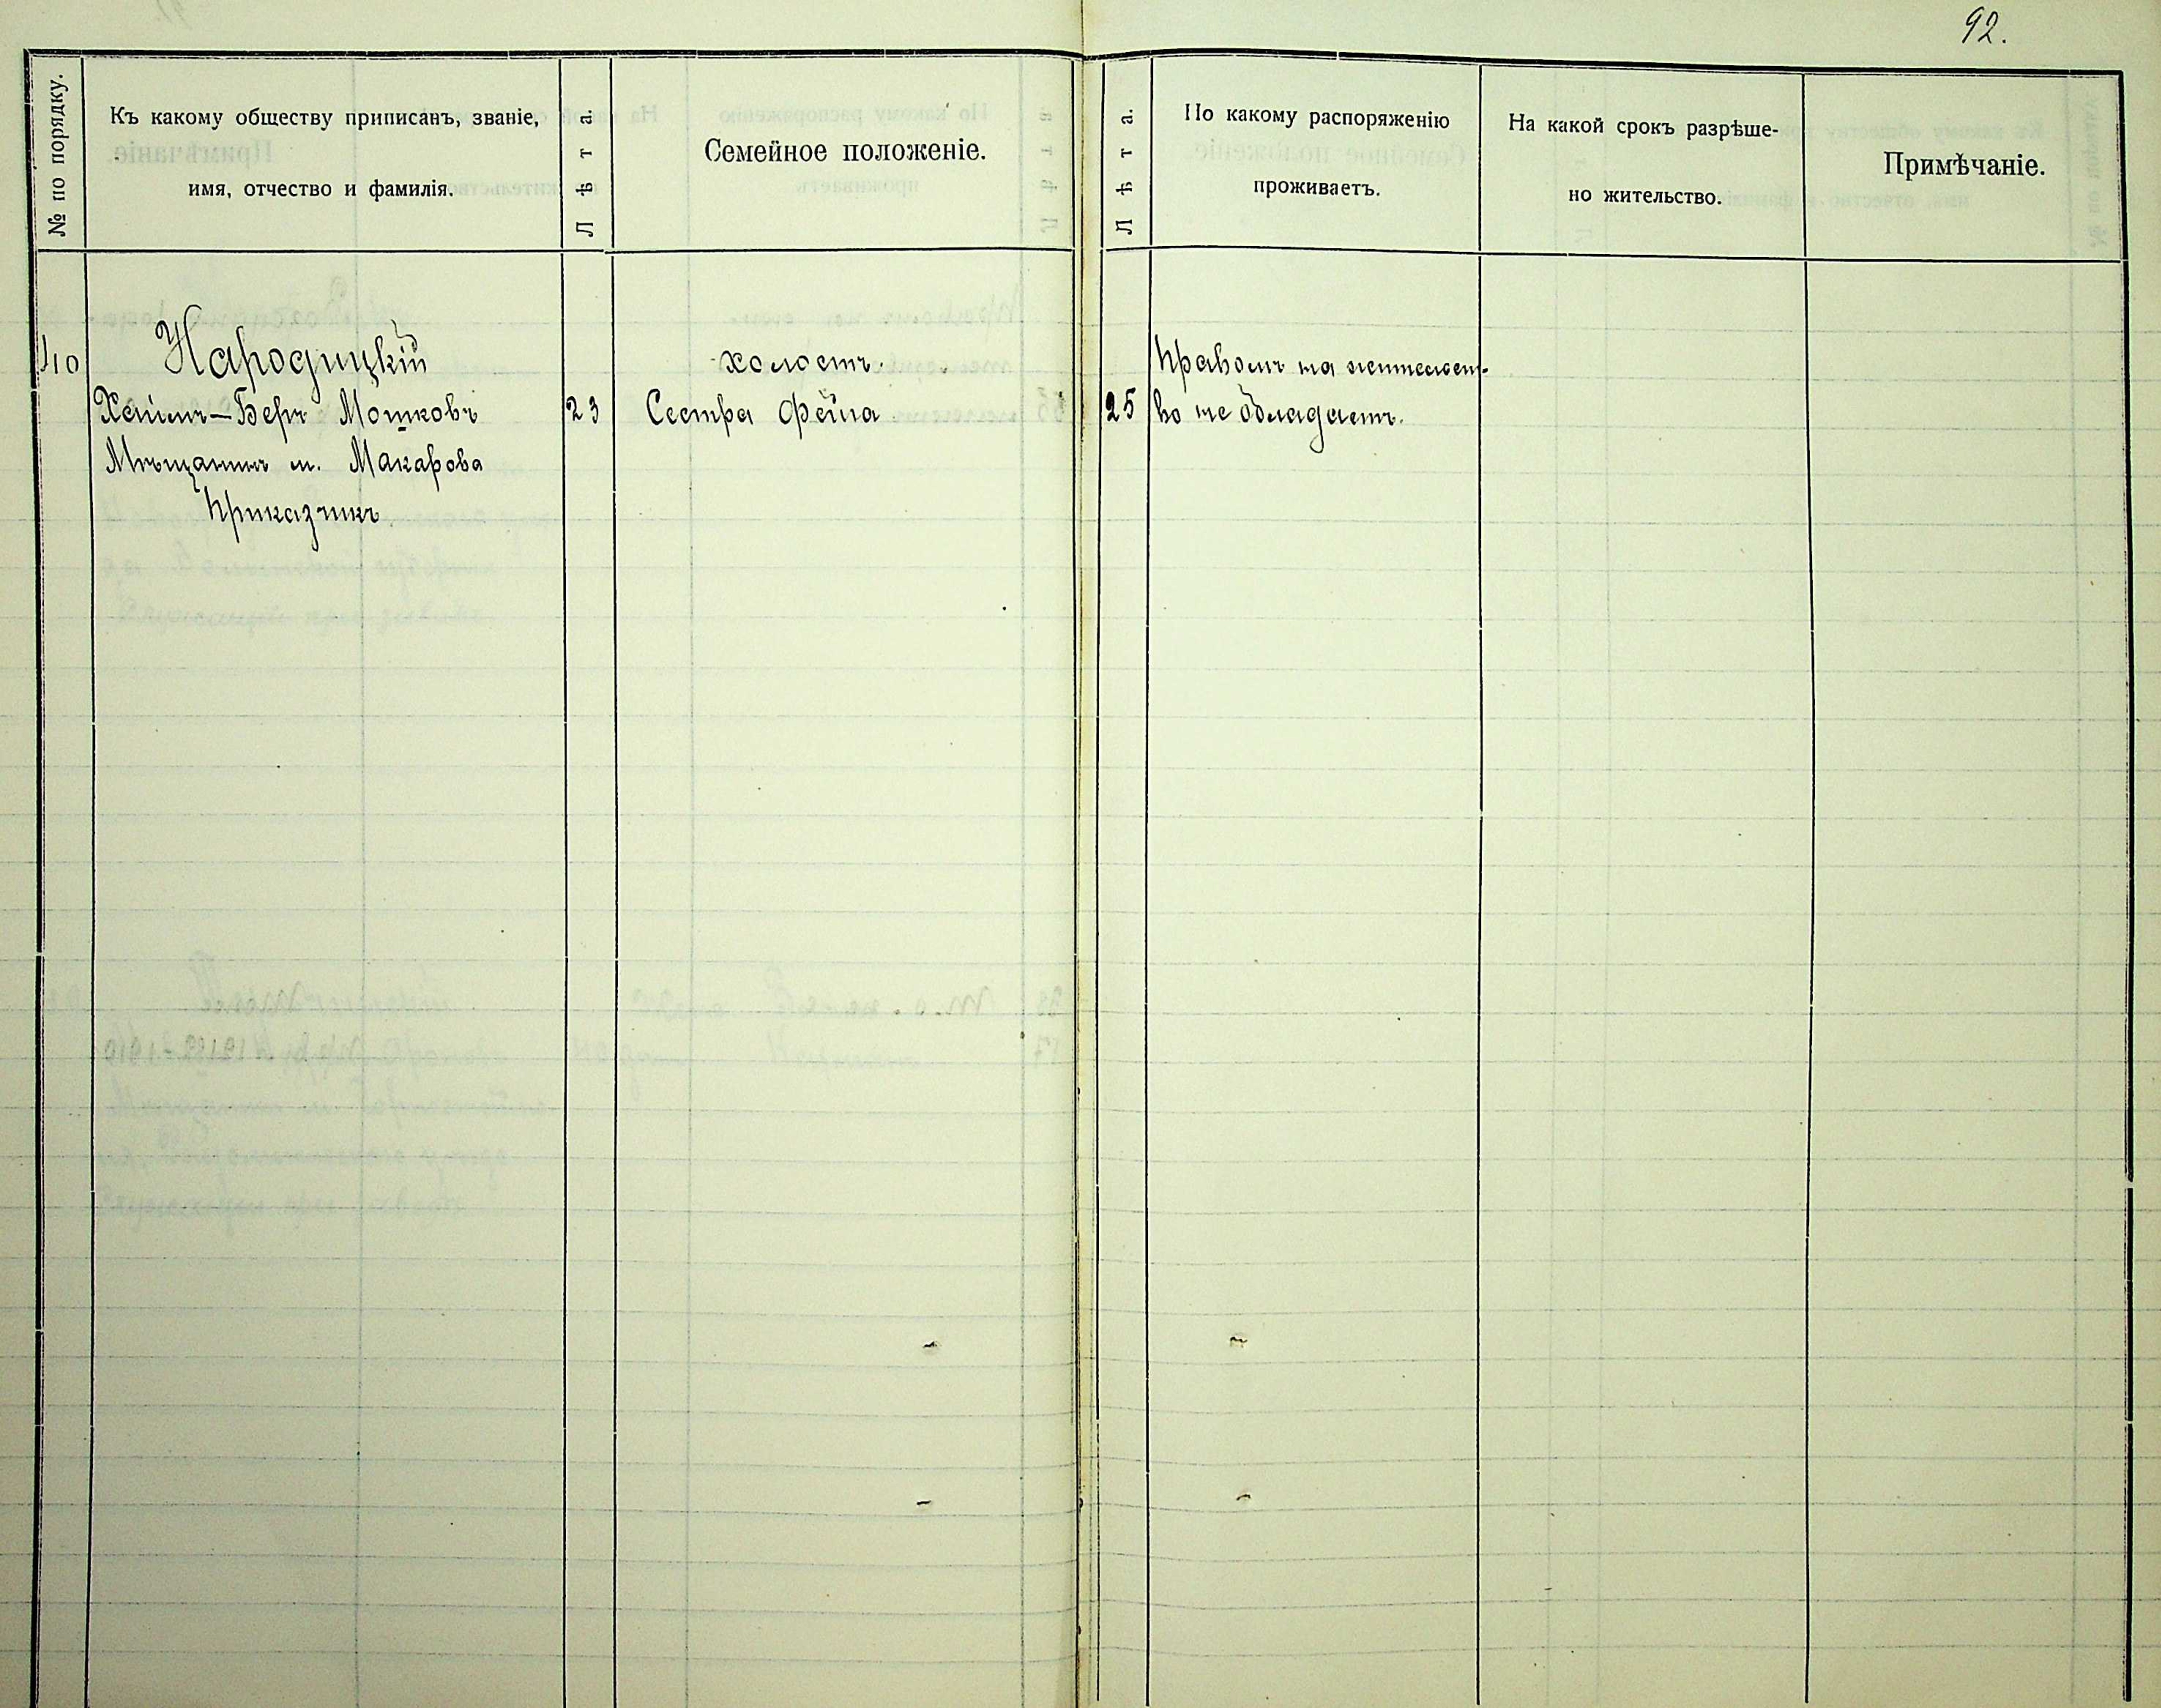 92.
№ по порядку.
Къ какому обществу приписанъ, званіе,
имя, отчество и фамилія.
Лѣта.
Семейное положеніе.
Лѣта.
По какому распоряженію
проживаетъ.
На какой срокъ разрѣше-
но жительство.
Примѣчаніе.
40
Народицкій
холостъ.
Правомъ на жительст-
Хаимъ-Беръ Мошковъ
23
Сестра Фейга
25
во не обладаетъ.
Мѣщанинъ м. Макарова
Приказчикъ